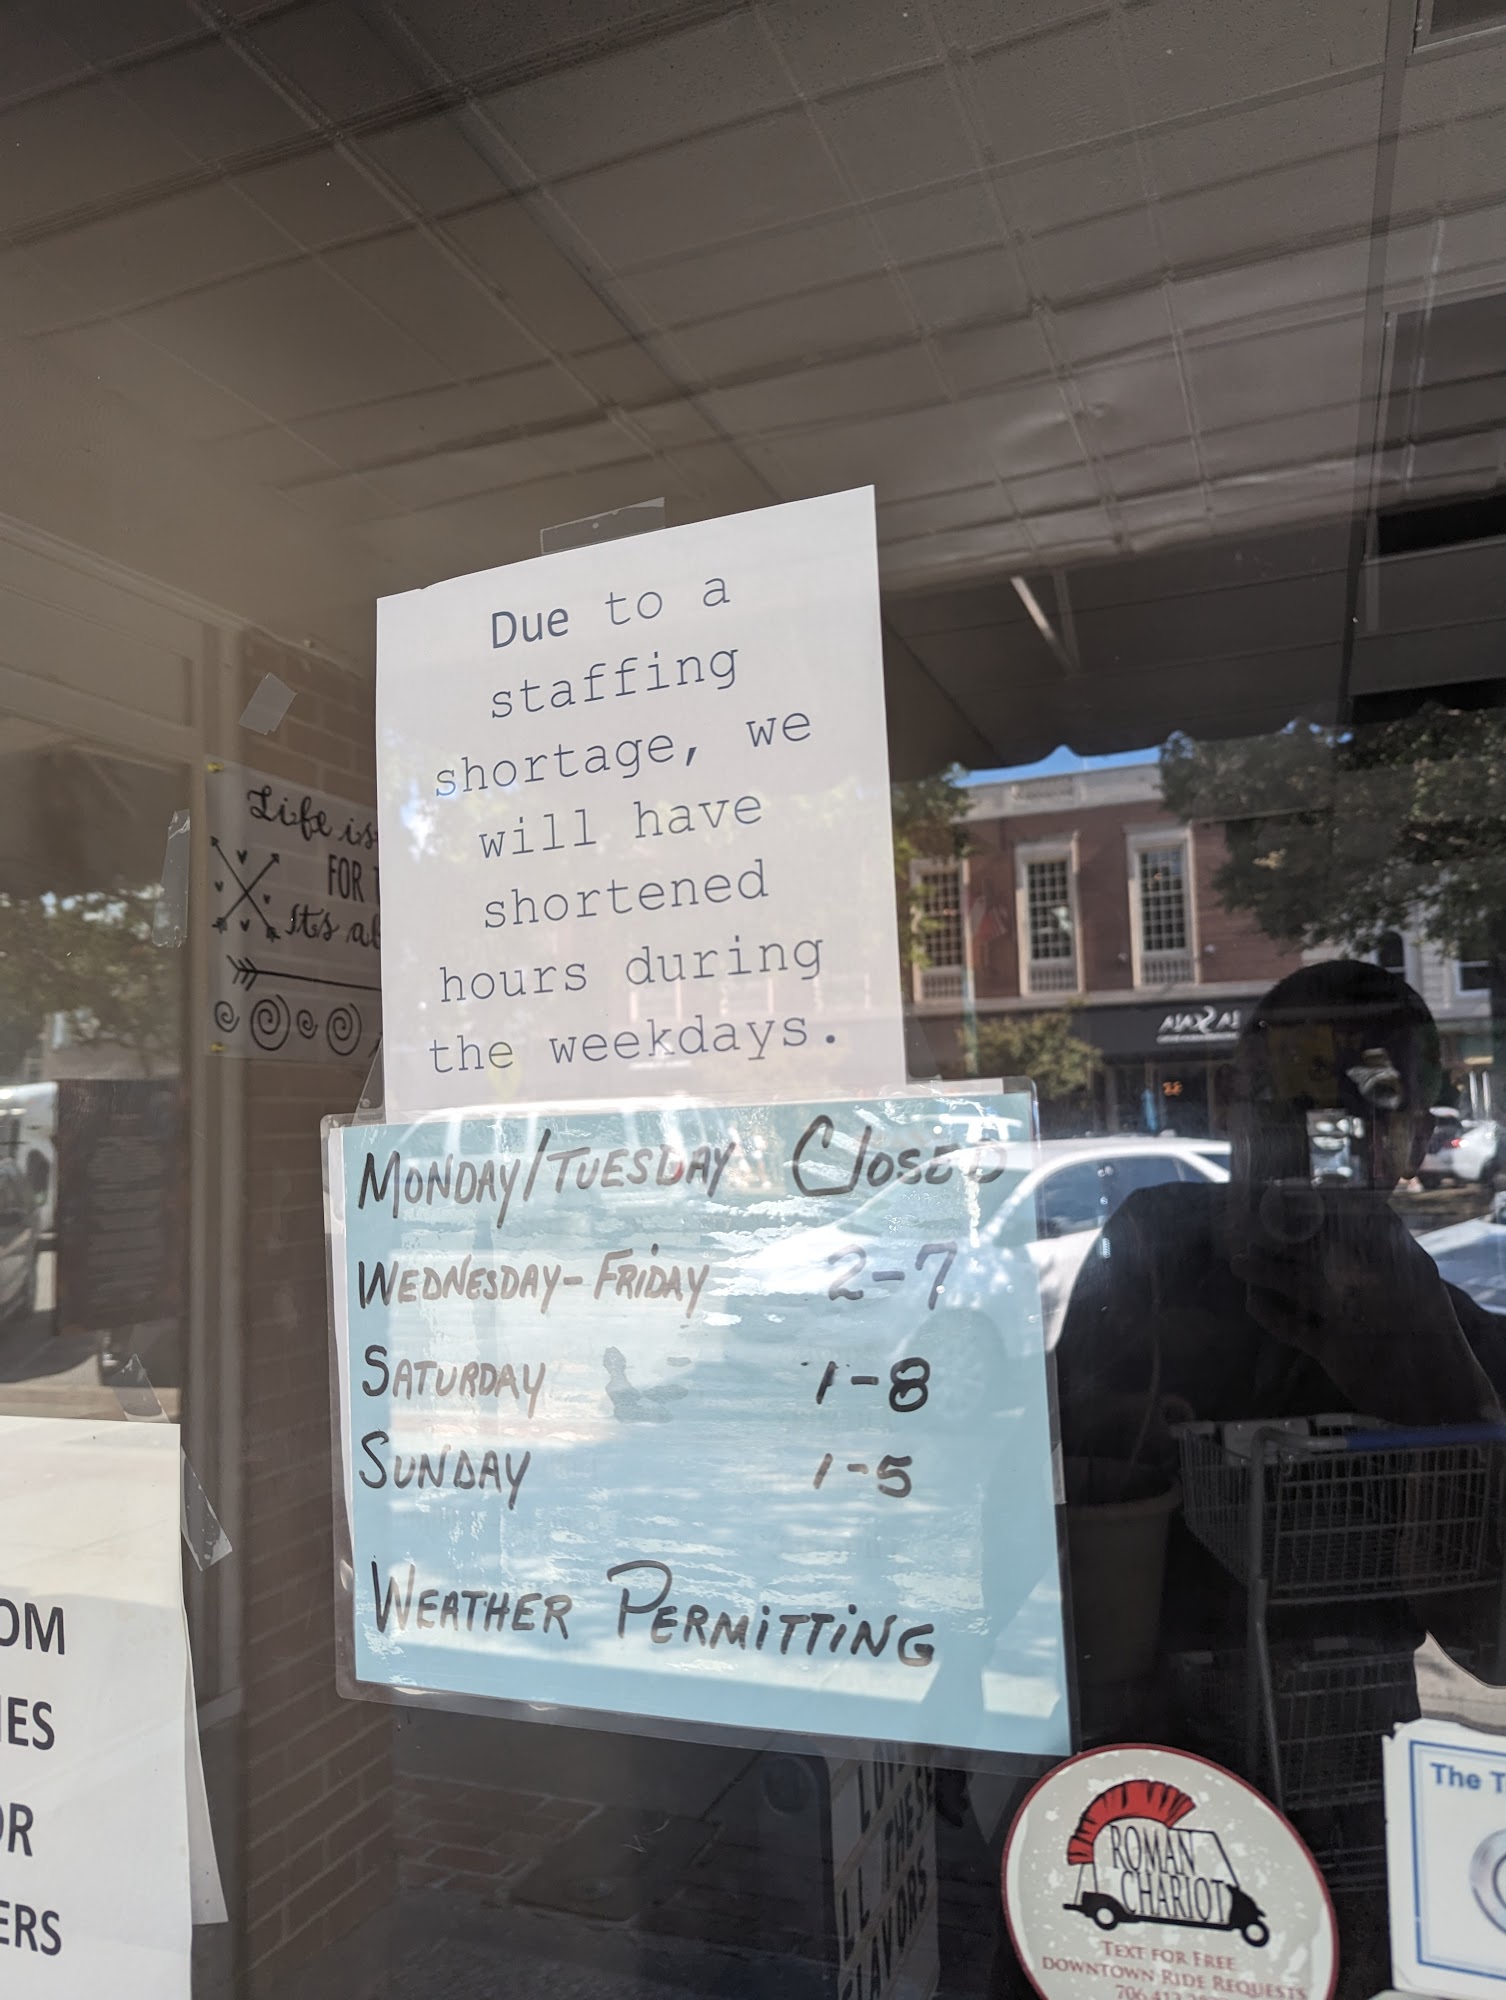 Due to a
staffing
shortage, we
will have
shortened
hours during
the weekdays.
MONDAY/TUESDAY CLOSED
WEDNESDAY-FRIDAY 2-7
SATURDAY 1-8
SUNDAY 1-5
WEATHER PERMITTING
Life is
FOR
it's
OM
IES
OR
ERS
LA SCALA
ROMAN
CHARIOT
TEXT FOR FREE
DOWNTOWN RIDE REQUESTS
The
THESE
FLAVORS